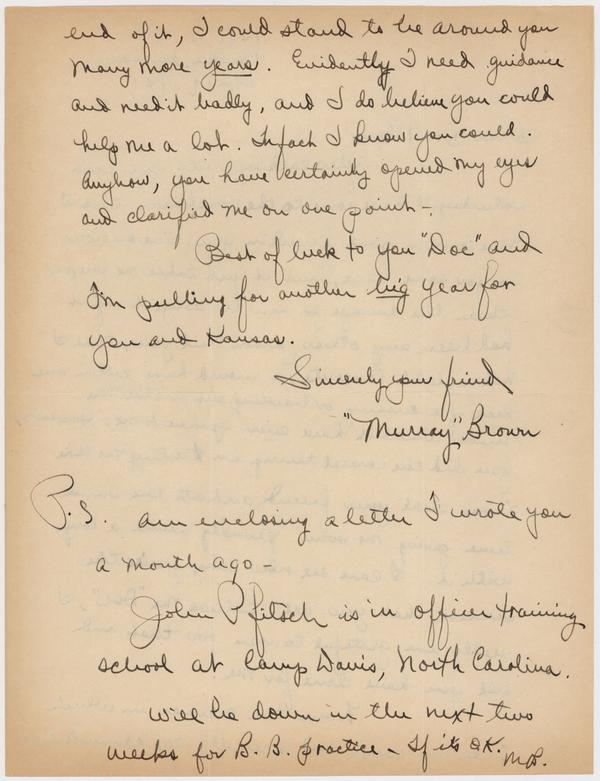 end of it, I could stand to be around you
many more years. Evidently I need guidance
and need it badly, and I do believe you could
help me a lot. In fact I know you could.
Anyhow, you have certainly opened my eyes
and clarified me on one point -.
Best of luck to you "Doc" and
I'm pulling for another big year for
you and Kansas.
Sincerely your friend
"Murray" Brown
P.S. am enclosing a letter I wrote you
a month ago -
John Pfitsch is in officer training
school at Camp Davis, North Carolina.
Will be down in the next two
weeks for B.B. practice - If its O.K.
M.B.